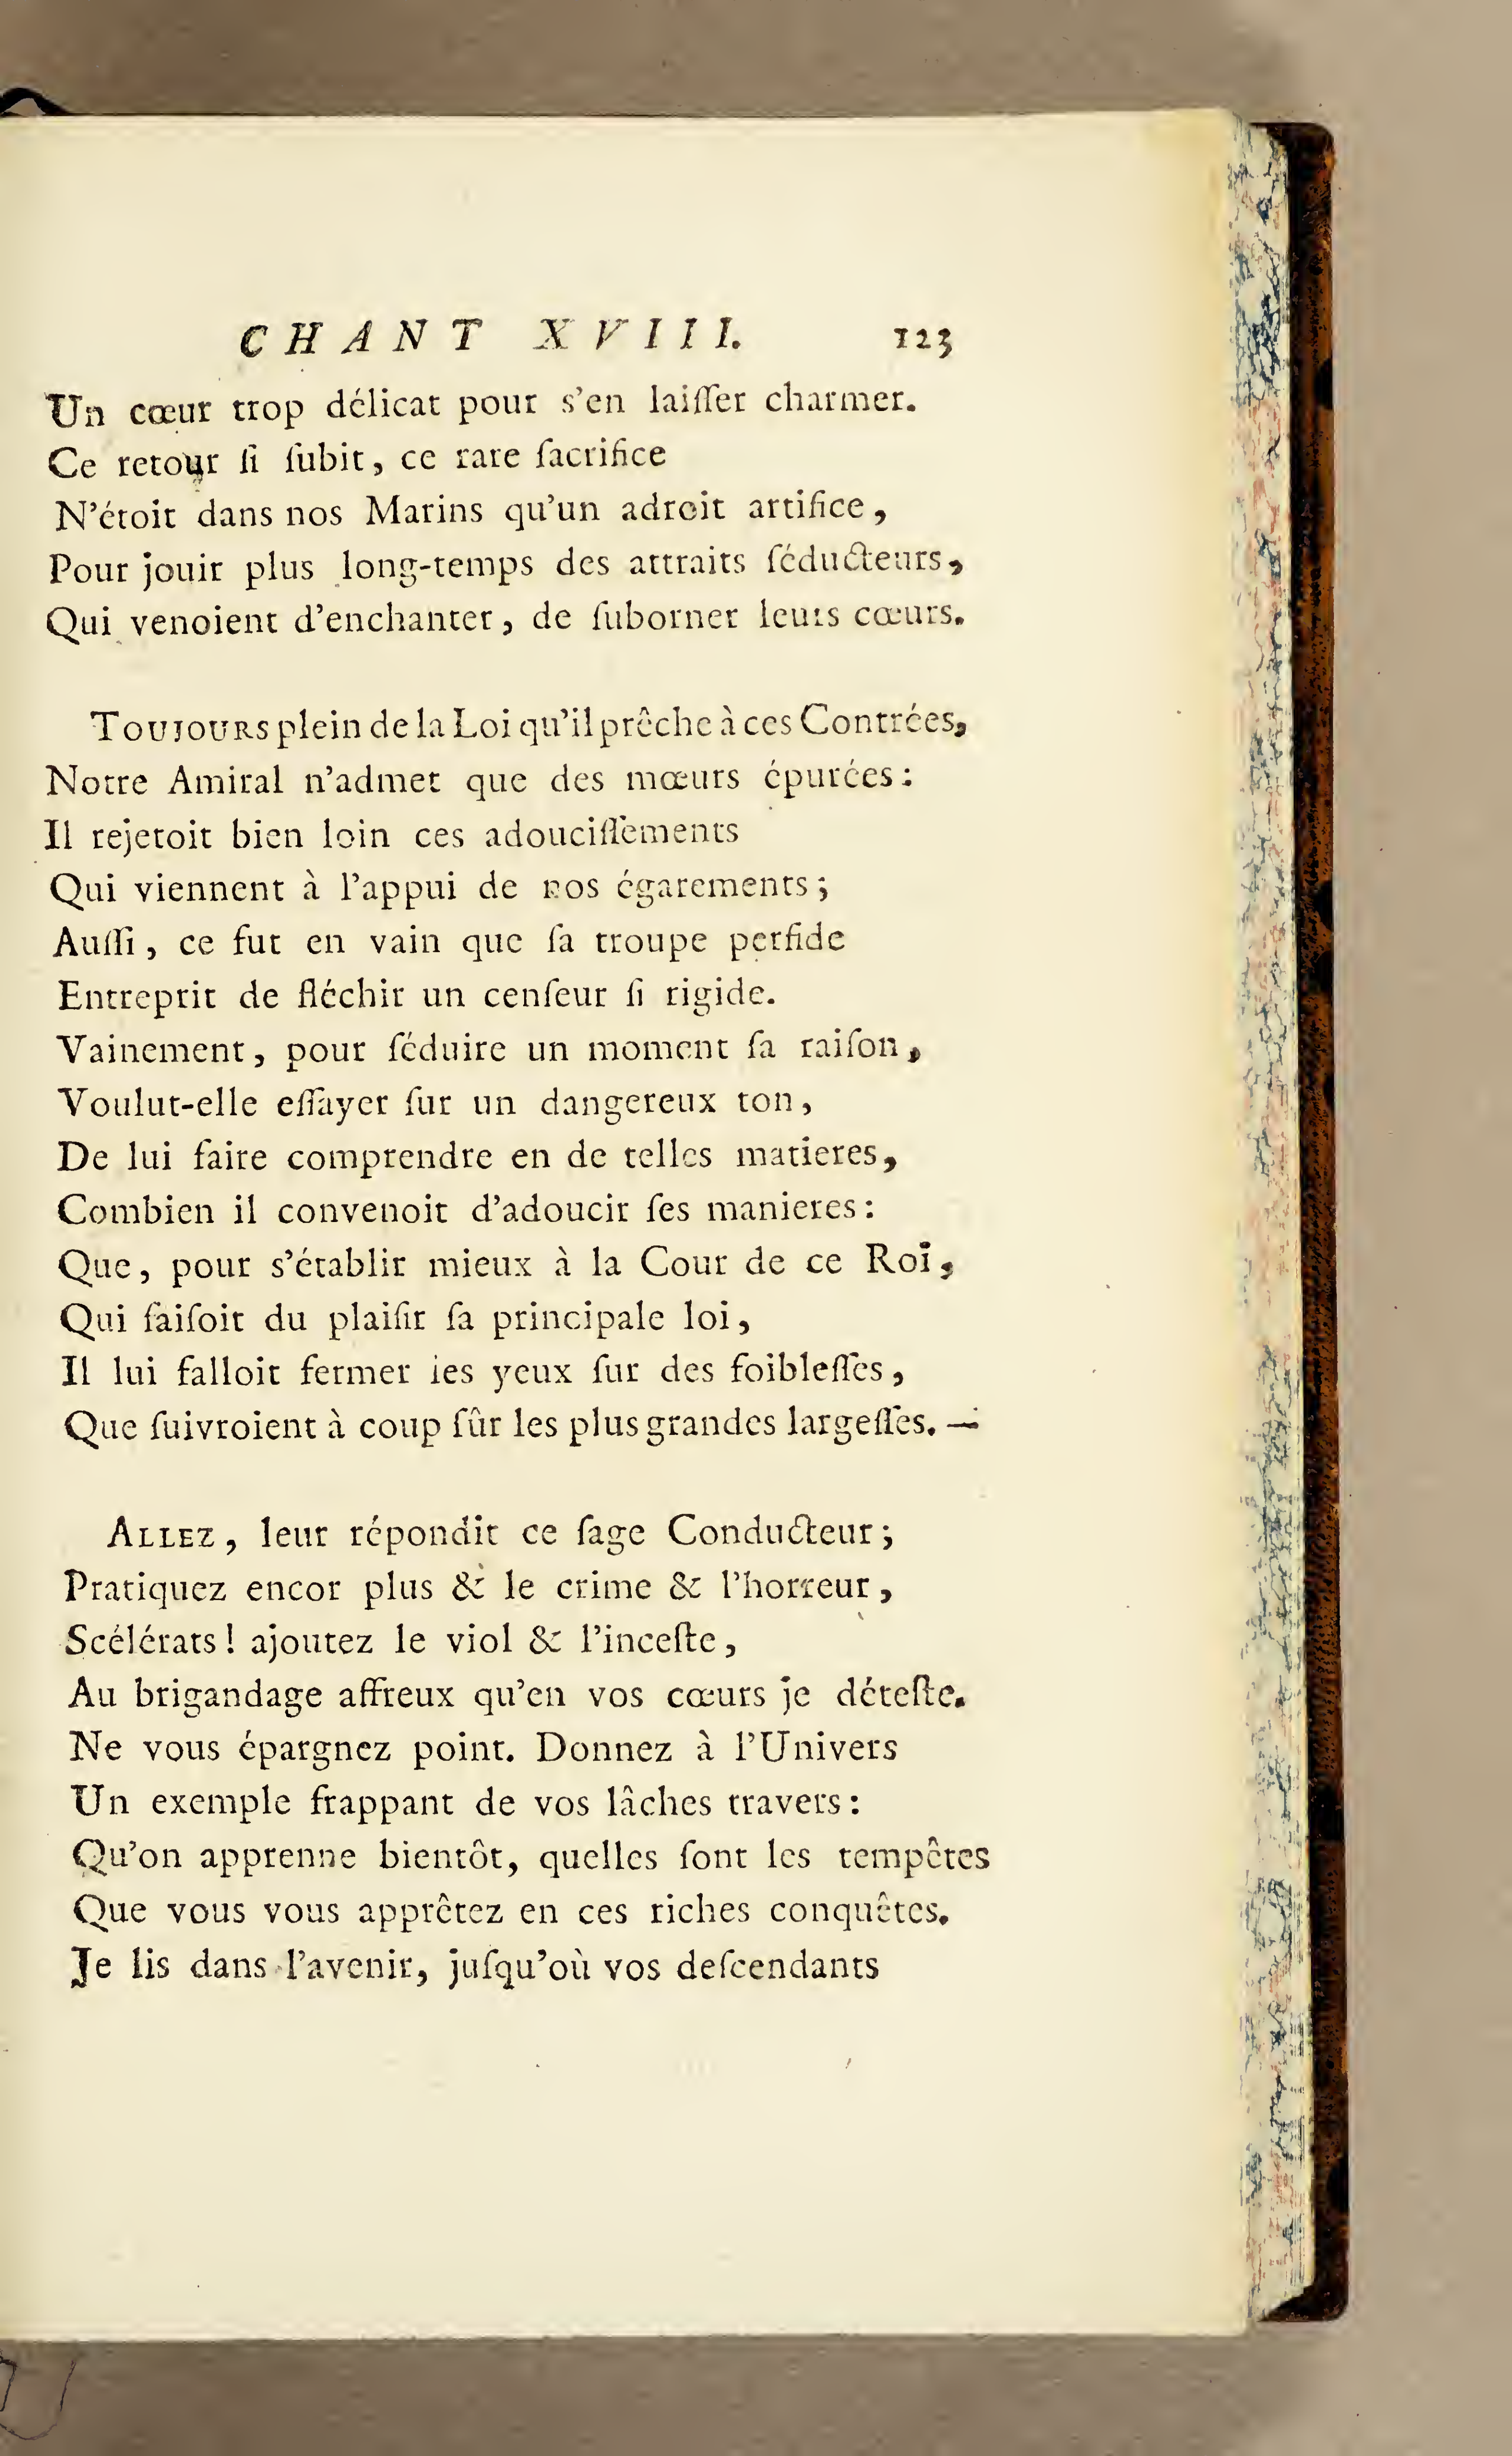 CHANT XVIII. 123
Un cœur trop délicat pour s'en laiſſer charmer.
Ce retour ſi ſubit, ce rare ſacrifice
N'étoit dans nos Marins qu'un adroit artifice,
Pour jouir plus long-temps des attraits ſéducteurs,
Qui venoient d'enchanter, de ſuborner leurs cœurs.
TOUJOURS plein de la Loi qu'il prêche à ces Contrées,
Notre Amiral n'admet que des mœurs épurées:
Il rejetoit bien loin ces adouciſſements
Qui viennent à l'appui de nos égarements;
Auſſi, ce fut en vain que ſa troupe perfide
Entreprit de fléchir un cenſeur ſi rigide.
Vainement, pour ſéduire un moment ſa raiſon,
Voulut-elle eſſayer ſur un dangereux ton,
De lui faire comprendre en de telles matieres,
Combien il convenoit d'adoucir ſes manieres:
Que, pour s'établir mieux à la Cour de ce Roi,
Qui faiſoit du plaiſir ſa principale loi,
Il lui falloit fermer les yeux ſur des foibleſſes,
Que ſuivroient à coup ſûr les plus grandes largeſſes. —
ALLEZ, leur répondit ce ſage Conducteur;
Pratiquez encor plus & le crime & l'horreur,
Scélérats! ajoutez le viol & l'inceſte,
Au brigandage affreux qu'en vos cœurs je déteſte.
Ne vous épargnez point. Donnez à l'Univers
Un exemple frappant de vos lâches travers:
Qu'on apprenne bientôt, quelles ſont les tempêtes
Que vous vous apprêtez en ces riches conquêtes.
Je lis dans l'avenir, juſqu'où vos deſcendants